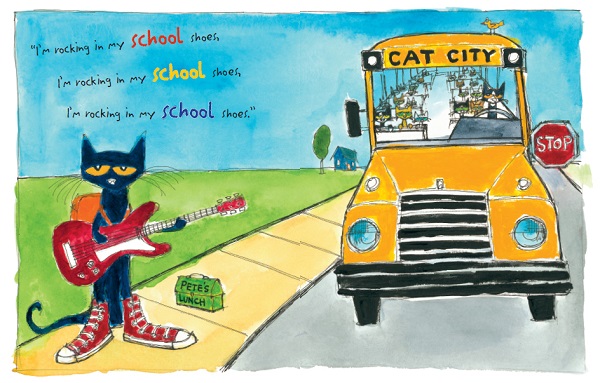 "I'm rocking in my school shoes,
I'm rocking in my school shoes,
I'm rocking in my school shoes."
CAT CITY
STOP
PETE'S
LUNCH